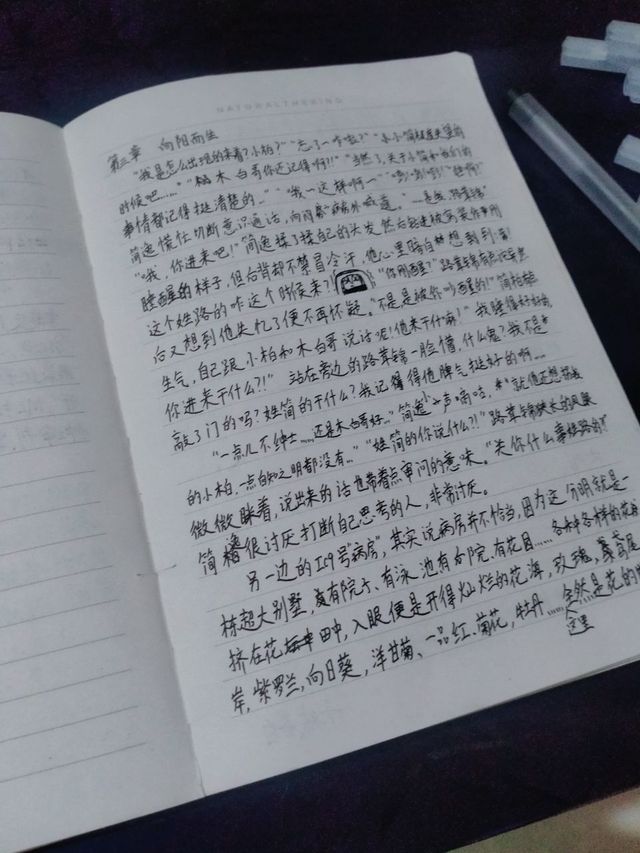 NATURALTHERING
第三章 向阳而生
"我是怎么出现的来着?小柏?""忘了一个啦?""小小简柱度失望的
时候吧……""柏木白哥你还记得啊!!""当然了,关于小简和我们的
事情都记得挺清楚的…""我一这样啊一""
简逸慌忙切断意识通话,向门窗外喊道。
"我,你进来吧!"简逸揉了揉自己的头发然后
睡醒的样子,但后背却不禁冒冷汗,他心里暗自想到:
这个姓路的咋这个时候来?"你刚醒?"路草锦
后又想到他失忆了便不再怀疑。"不是是被你吵醒的!"简柏
生气,自己跟小柏和木白哥说话呢!他来干什嘛!"我睡得好好的
你进来干什么?!"站在旁边的路草锦一脸懵,什么鬼?我不是
敲了门的吗?姓简的干什么?我记得得他脾气挺好的啊…
"一点儿不绅士……还是木白哥好…"简逸小声嘀咕,"就他还想
的小柏,一点自知之明都没有…""姓简的你说什么?!"路草锦狭长的凤眼
微微眯着,说出来的话也带着点审问的意味。"关你什么事姓路的?"
简很讨厌打断自己思考的人,非常讨厌。
另一边的119号"病房",其实说病房并不恰当,因为这分明就是一
栋超大别墅,有院子、有泳池有后院有花园……各种各样的花
挤在花田中,入眼便是开得灿烂的花海,玫瑰,鸢尾
岸,紫罗兰,向日葵,洋甘菊、一品红、菊花,牡丹……然是花的
这里